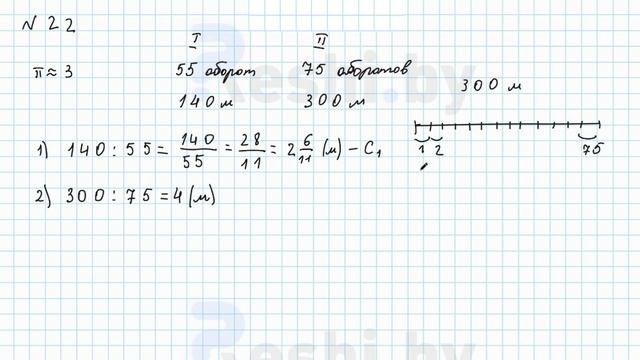 №22
I II
π≈3 55 оборот 75 оборотов
140 м 300 м
300 м
1) 140 : 55 = 140/55 = 28/11 = 2 6/11 (м) – C₁
1 2 75
2) 300 : 75 = 4 (м)
Reshi.by
Reshi.by